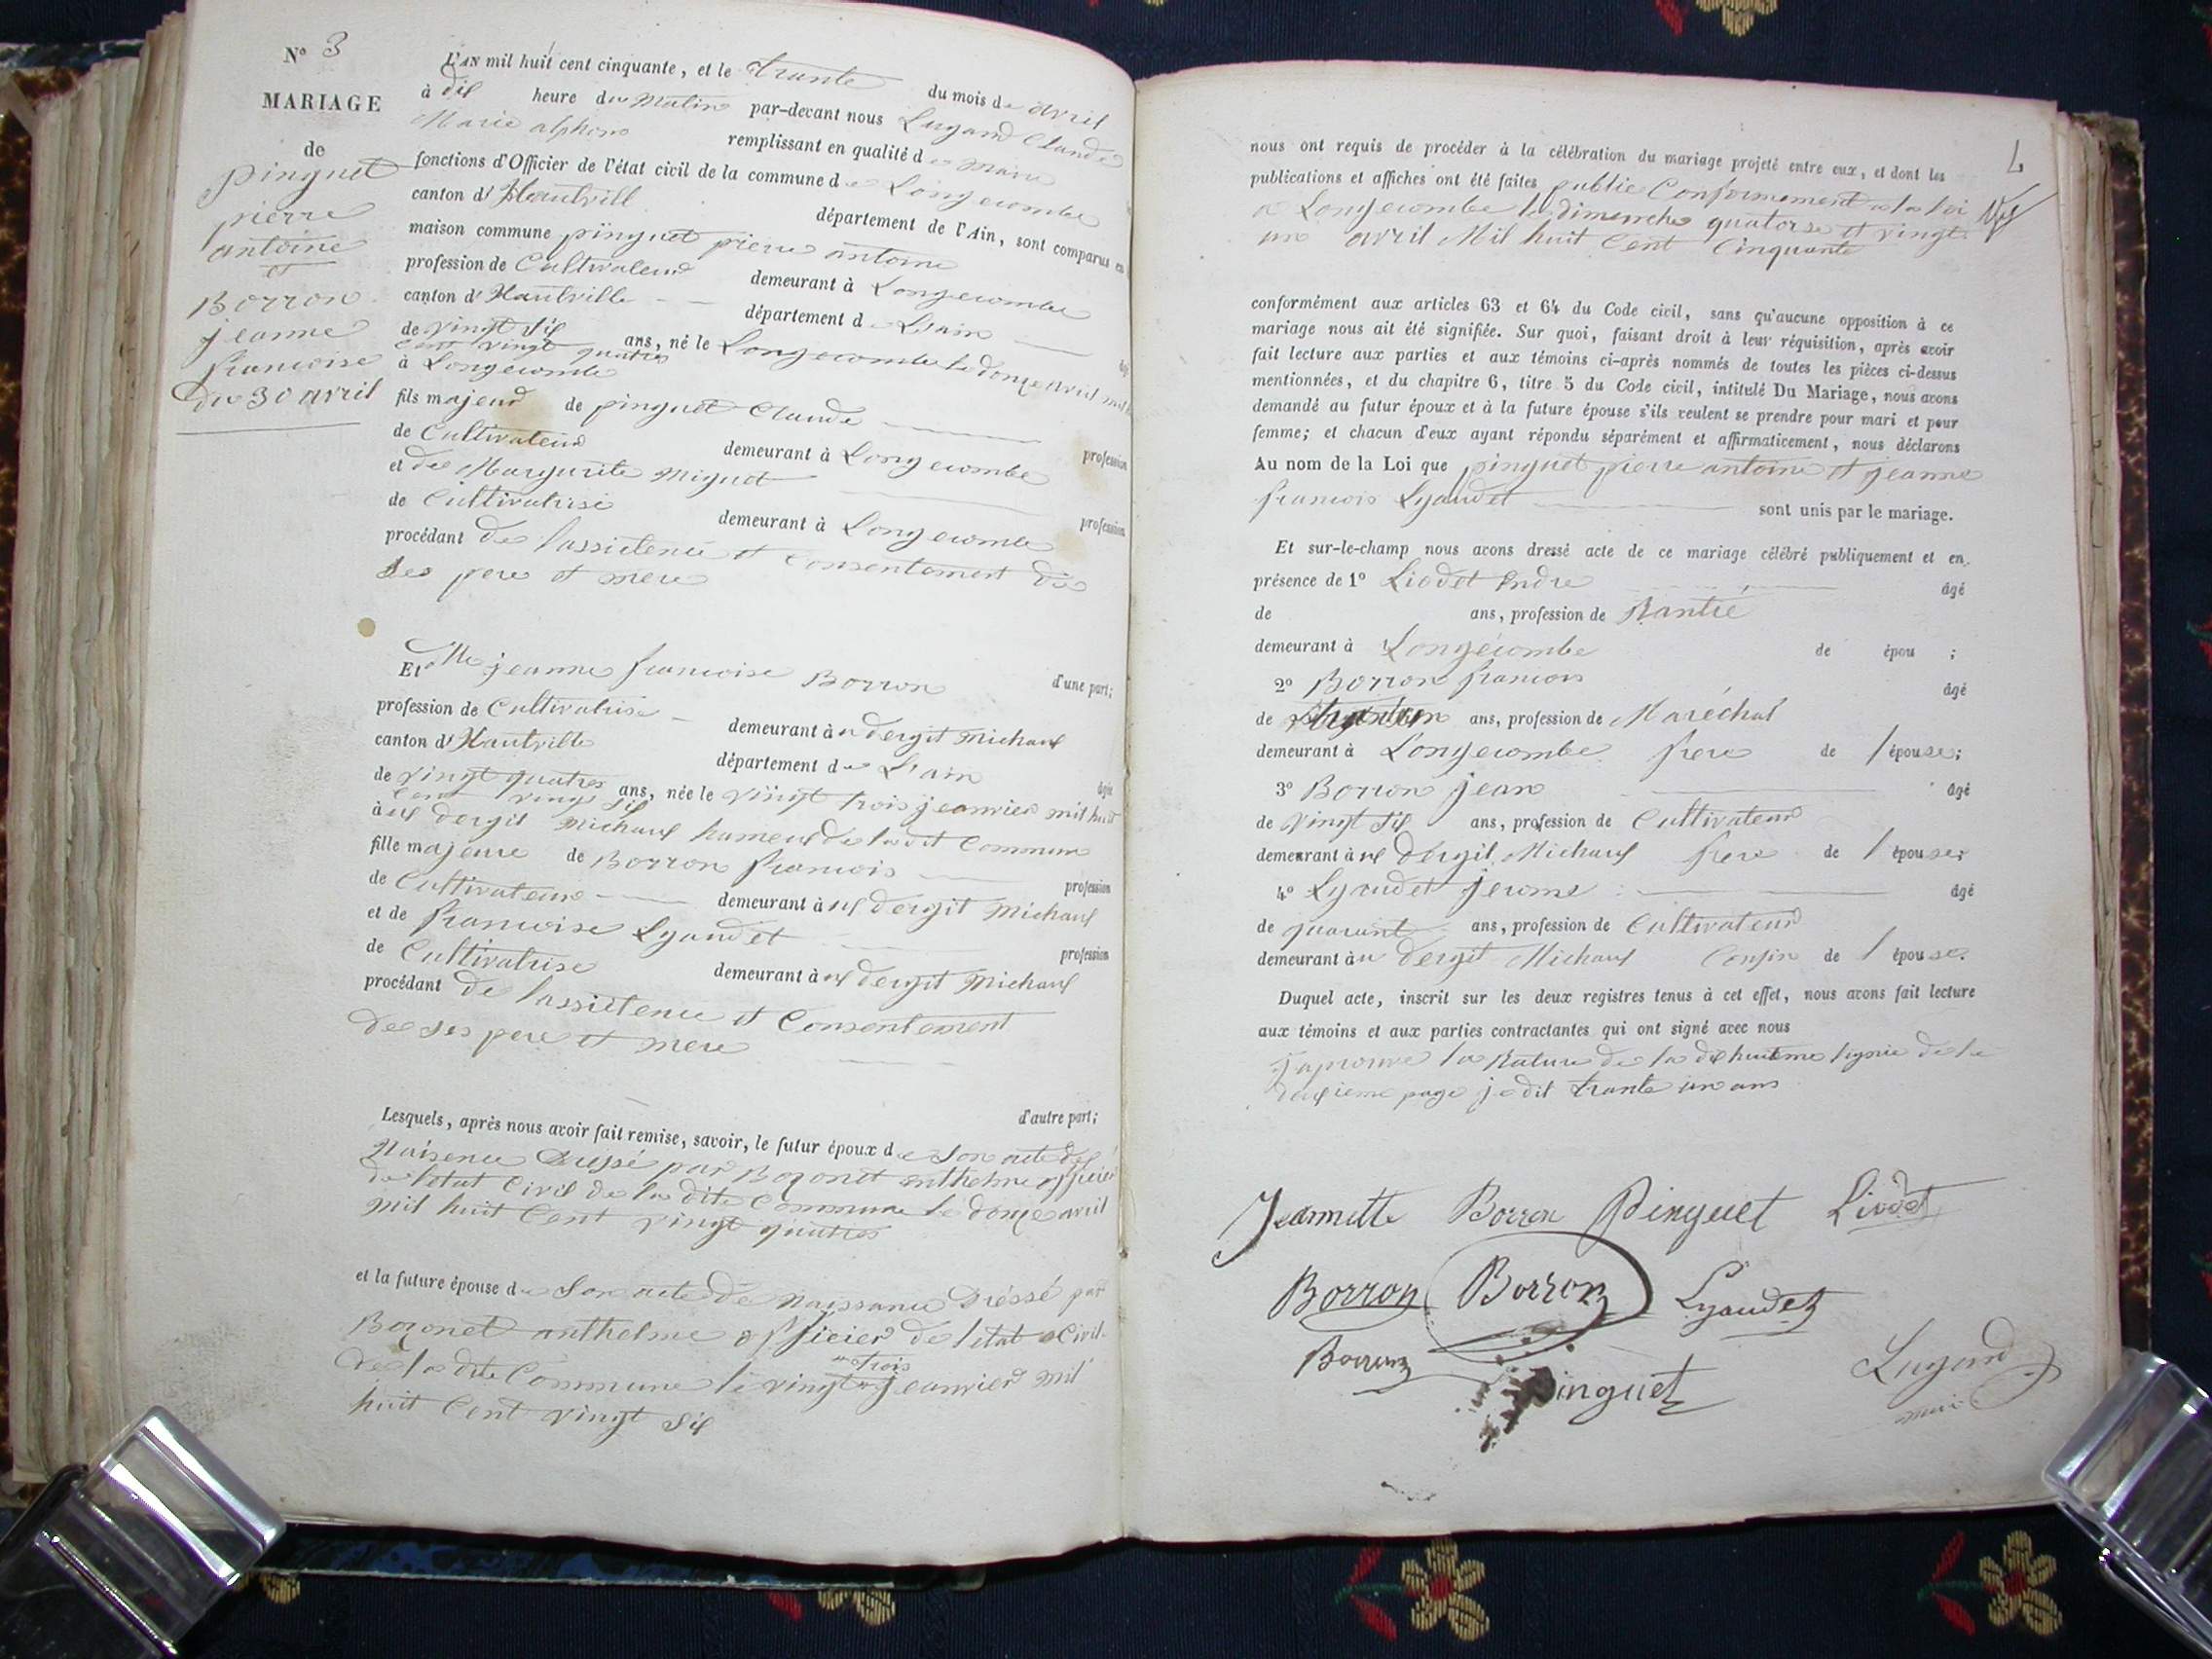 N° 3
MARIAGE
de
pinguet
pierre
antoine
et
Borron
jeanne
francoise
du 30 avril
L'AN mil huit cent cinquante, et le trante du mois de avril
à dix heure du Matin par-devant nous Lugand Claude
Marie alphons remplissant en qualité de Maire
fonctions d'Officier de l'état civil de la commune de Longecombe
canton d'Hautvill département de l'Ain, sont comparus en
maison commune pinguet pierre antoine
profession de Cultivateur demeurant à Longecombe
canton d'Hautville département de L'ain
de vingt six ans, né le Longecombe le douze avril mil
cent vingt quatres
à Longecombe
fils majeur de pinguet Claude profession
de Cultivateur demeurant à Longecombe
et de Margurite Miguet profession
de Cultivatrise demeurant à Longecombe
procédant de lassistence et Consentement de
Ses pere et mere
d'une part;
Et Mlle jeanne francoise Borron
profession de Cultivatrise demeurant à u dergit Michaux
canton d'Hautville département de L'ain
de vingt quatres ans, née le vingt trois jeanvier mil huit
cent vingt six
à ux dergit Michaux hameux de la dit Commune
fille majeure de Borron francois profession
de Cultivateur demeurant à ux dergit Michaux
et de francoise Lyaudet profession
de Cultivatrise demeurant à ux dergit Michaux
procédant de lassistence et Consentement
de ses pere et mere
d'autre part;
Lesquels, après nous avoir fait remise, savoir, le futur époux de Son acte de
Naisence Dressé par Bozonet anthelme officier
de letat Civil de la dite Commune le douze avril
mil huit Cent vingt quatres
et la future épouse de Son acte de Naissance Dréssé par
Bozonet anthelme officier de letat Civil
de la dite Commune le vingt trois jeanvier mil
huit Cent vingt six
nous ont requis de procéder à la célébration du mariage projeté entre eux, et dont les
publications et affiches ont été faites publie Conformement a la loi
a Longecombe le dimenche quatorse et vingt
un avril Mil huit Cent Cinquante
conformément aux articles 63 et 64 du Code civil, sans qu'aucune opposition à ce
mariage nous ait été signifiée. Sur quoi, faisant droit à leur réquisition, après avoir
fait lecture aux parties et aux témoins ci-après nommés de toutes les pièces ci-dessus
mentionnées, et du chapitre 6, titre 5 du Code civil, intitulé Du Mariage, nous avons
demandé au futur époux et à la future épouse s'ils veulent se prendre pour mari et pour
femme; et chacun d'eux ayant répondu séparément et affirmativement, nous déclarons
Au nom de la Loi que pinguet pierre antoine et jeanne
francois Lyaudet sont unis par le mariage.
Et sur-le-champ nous avons dressé acte de ce mariage célébré publiquement et en
présence de 1° Liodet Andre âgé
de ans, profession de Rantié
demeurant à Longecombe de épou ;
2° Borron francois âgé
de ans, profession de Maréchal
demeurant à Longecombe frere de l'épouse;
3° Borron jean âgé
de vingt six ans, profession de Cultivateur
demeurant à ux dergit Michaux frere de l'épouse;
4° Lyaudet jerome âgé
de quarant ans, profession de Cultivateur
demeurant à u dergit Michaux Cousin de l'épouse.
Duquel acte, inscrit sur les deux registres tenus à cet effet, nous avons fait lecture
aux témoins et aux parties contractantes qui ont signé avec nous
J'aprouve la Rature de la dix huitème lignie de la
deuxieme page je dit trante un ans
Jeannette Borron Pinguet Liodet
Borron Borron Lyaudet
Borron Pinguet Lugand